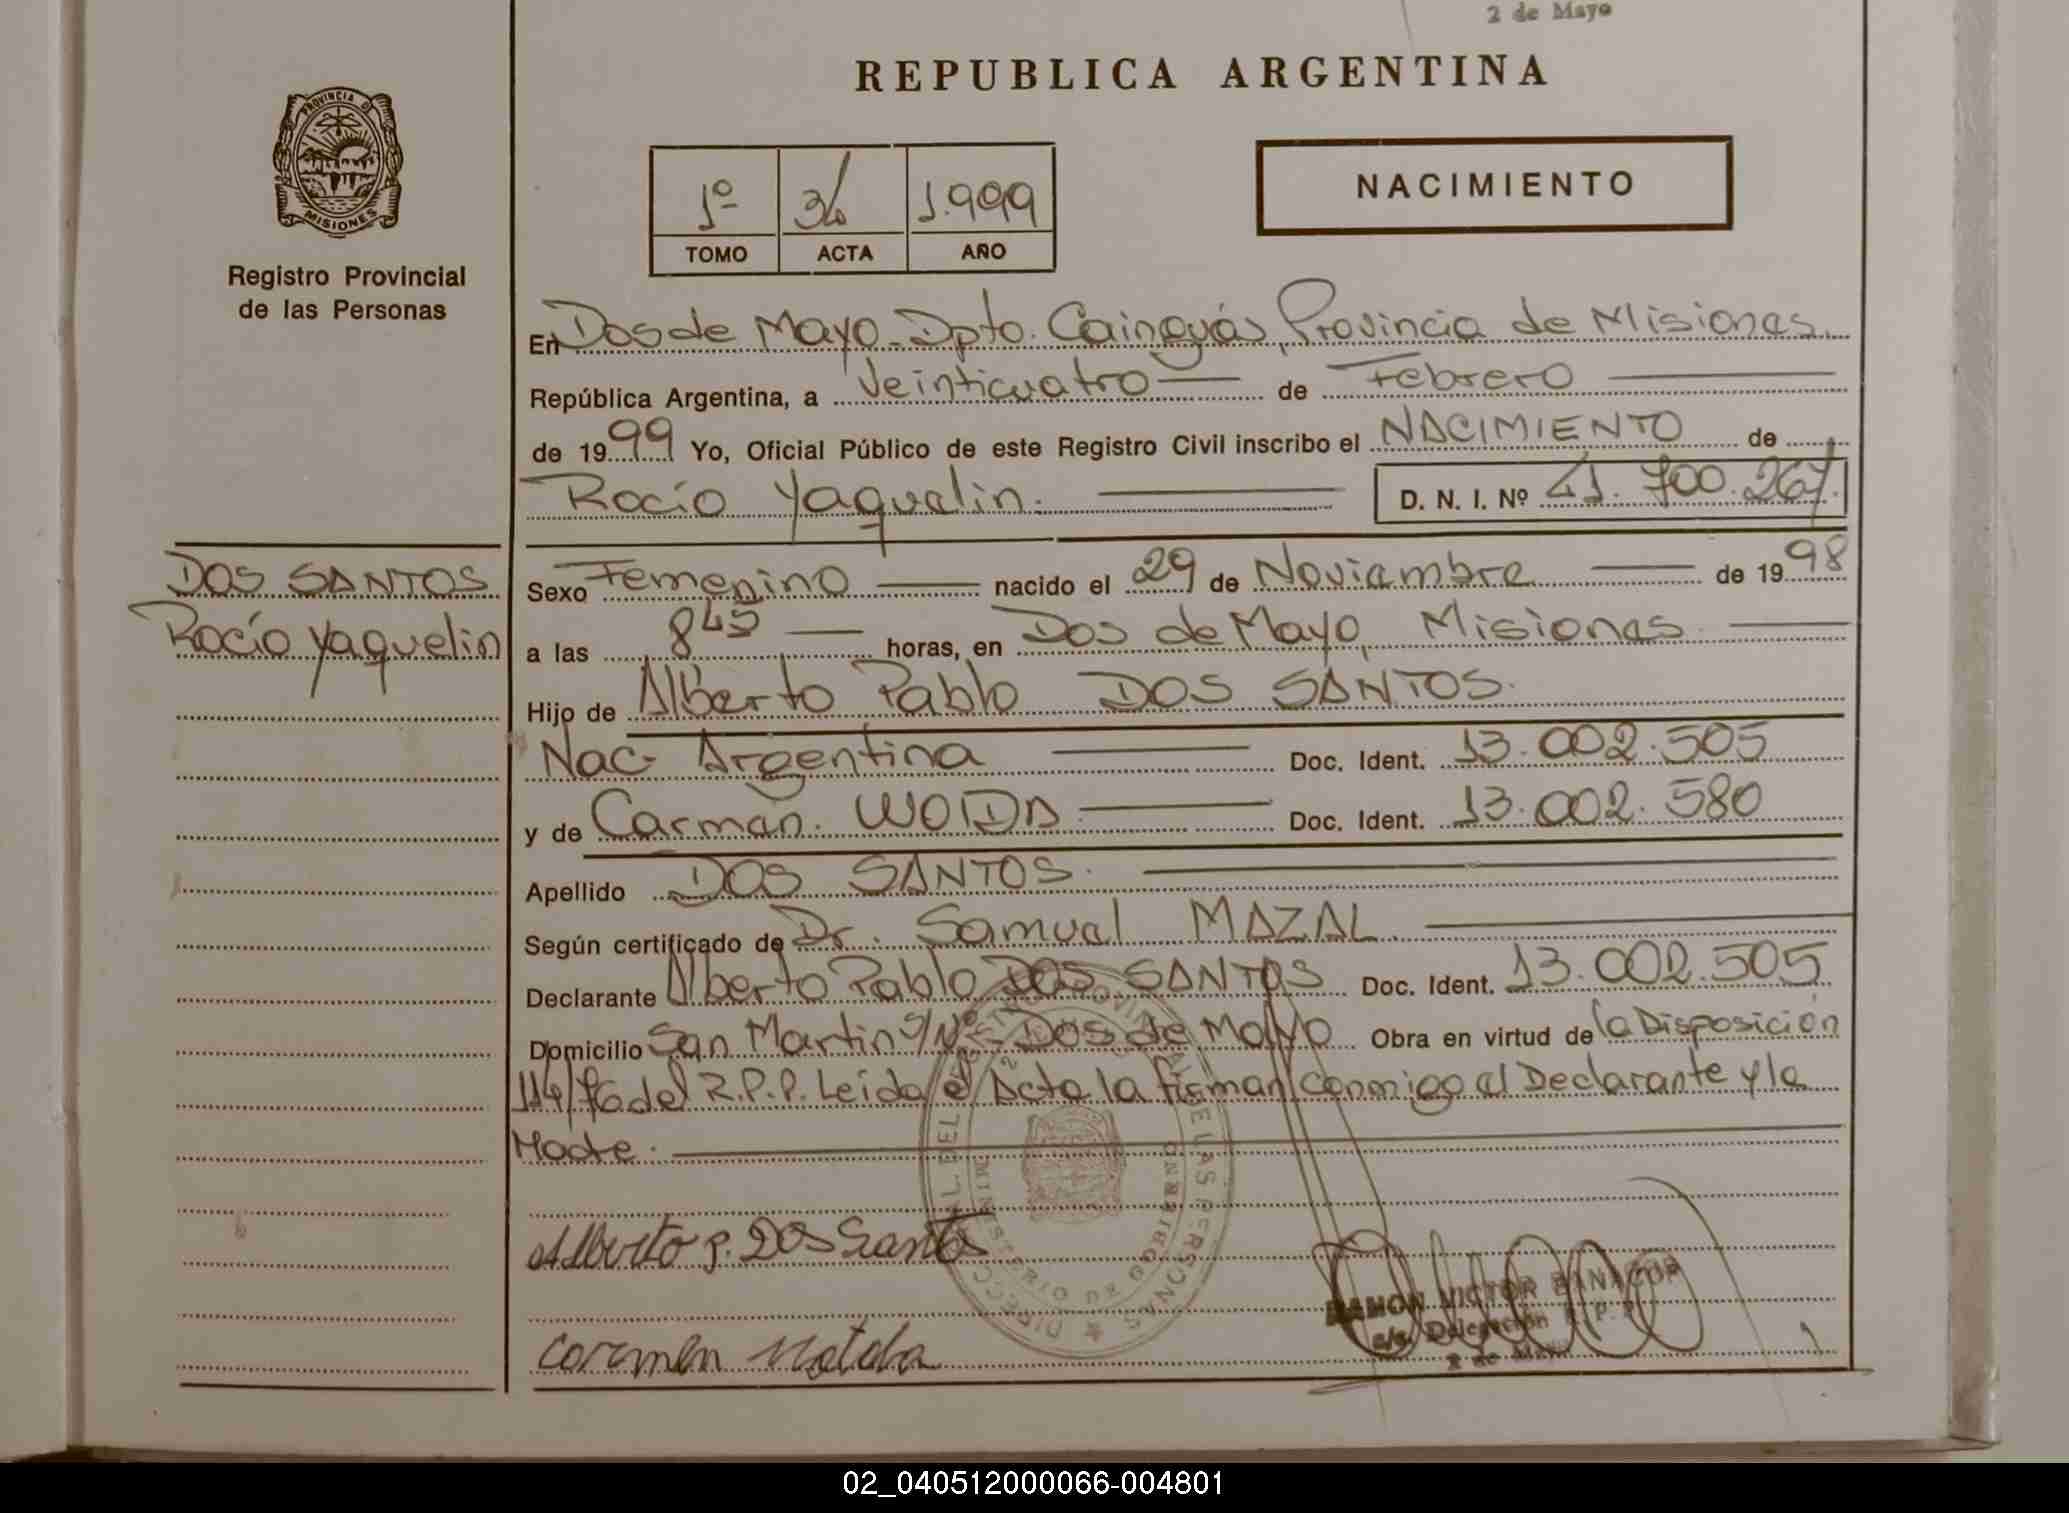 2 de Mayo
REPUBLICA ARGENTINA
PROVINCIA D
MISIONES
Registro Provincial
de las Personas
1º 34 1.999
TOMO ACTA AÑO
NACIMIENTO
En Dos de Mayo - Dpto. Cainguás, Provincia de Misiones.
República Argentina, a Veinticuatro de Febrero
de 1999 Yo, Oficial Público de este Registro Civil inscribo el NACIMIENTO de
Rocío Yaquelin. D. N. I. Nº 41.700.267.
DOS SANTOS
Rocío Yaquelin
Sexo Femenino nacido el 29 de Noviembre de 1998
a las 8 45 horas, en Dos de Mayo, Misiones
Hijo de Alberto Pablo DOS SANTOS.
Nac. Argentina Doc. Ident. 13.002.505
y de Carmen. WOIDA Doc. Ident. 13.002.580
Apellido DOS SANTOS.
Según certificado de Dr. Samuel MAZAL
Declarante Alberto Pablo DOS SANTOS Doc. Ident. 13.002.505
Domicilio San Martin S/Nº - Dos de Mayo Obra en virtud de la Disposición
114/76 del R.P.P. Leida el Acta la firman conmigo el Declarante y la
Madre.
Alberto P. Dos Santos
Carmen
RAMON VICTOR
Delegación R.P.P.
2 de Mayo
02_040512000066-004801